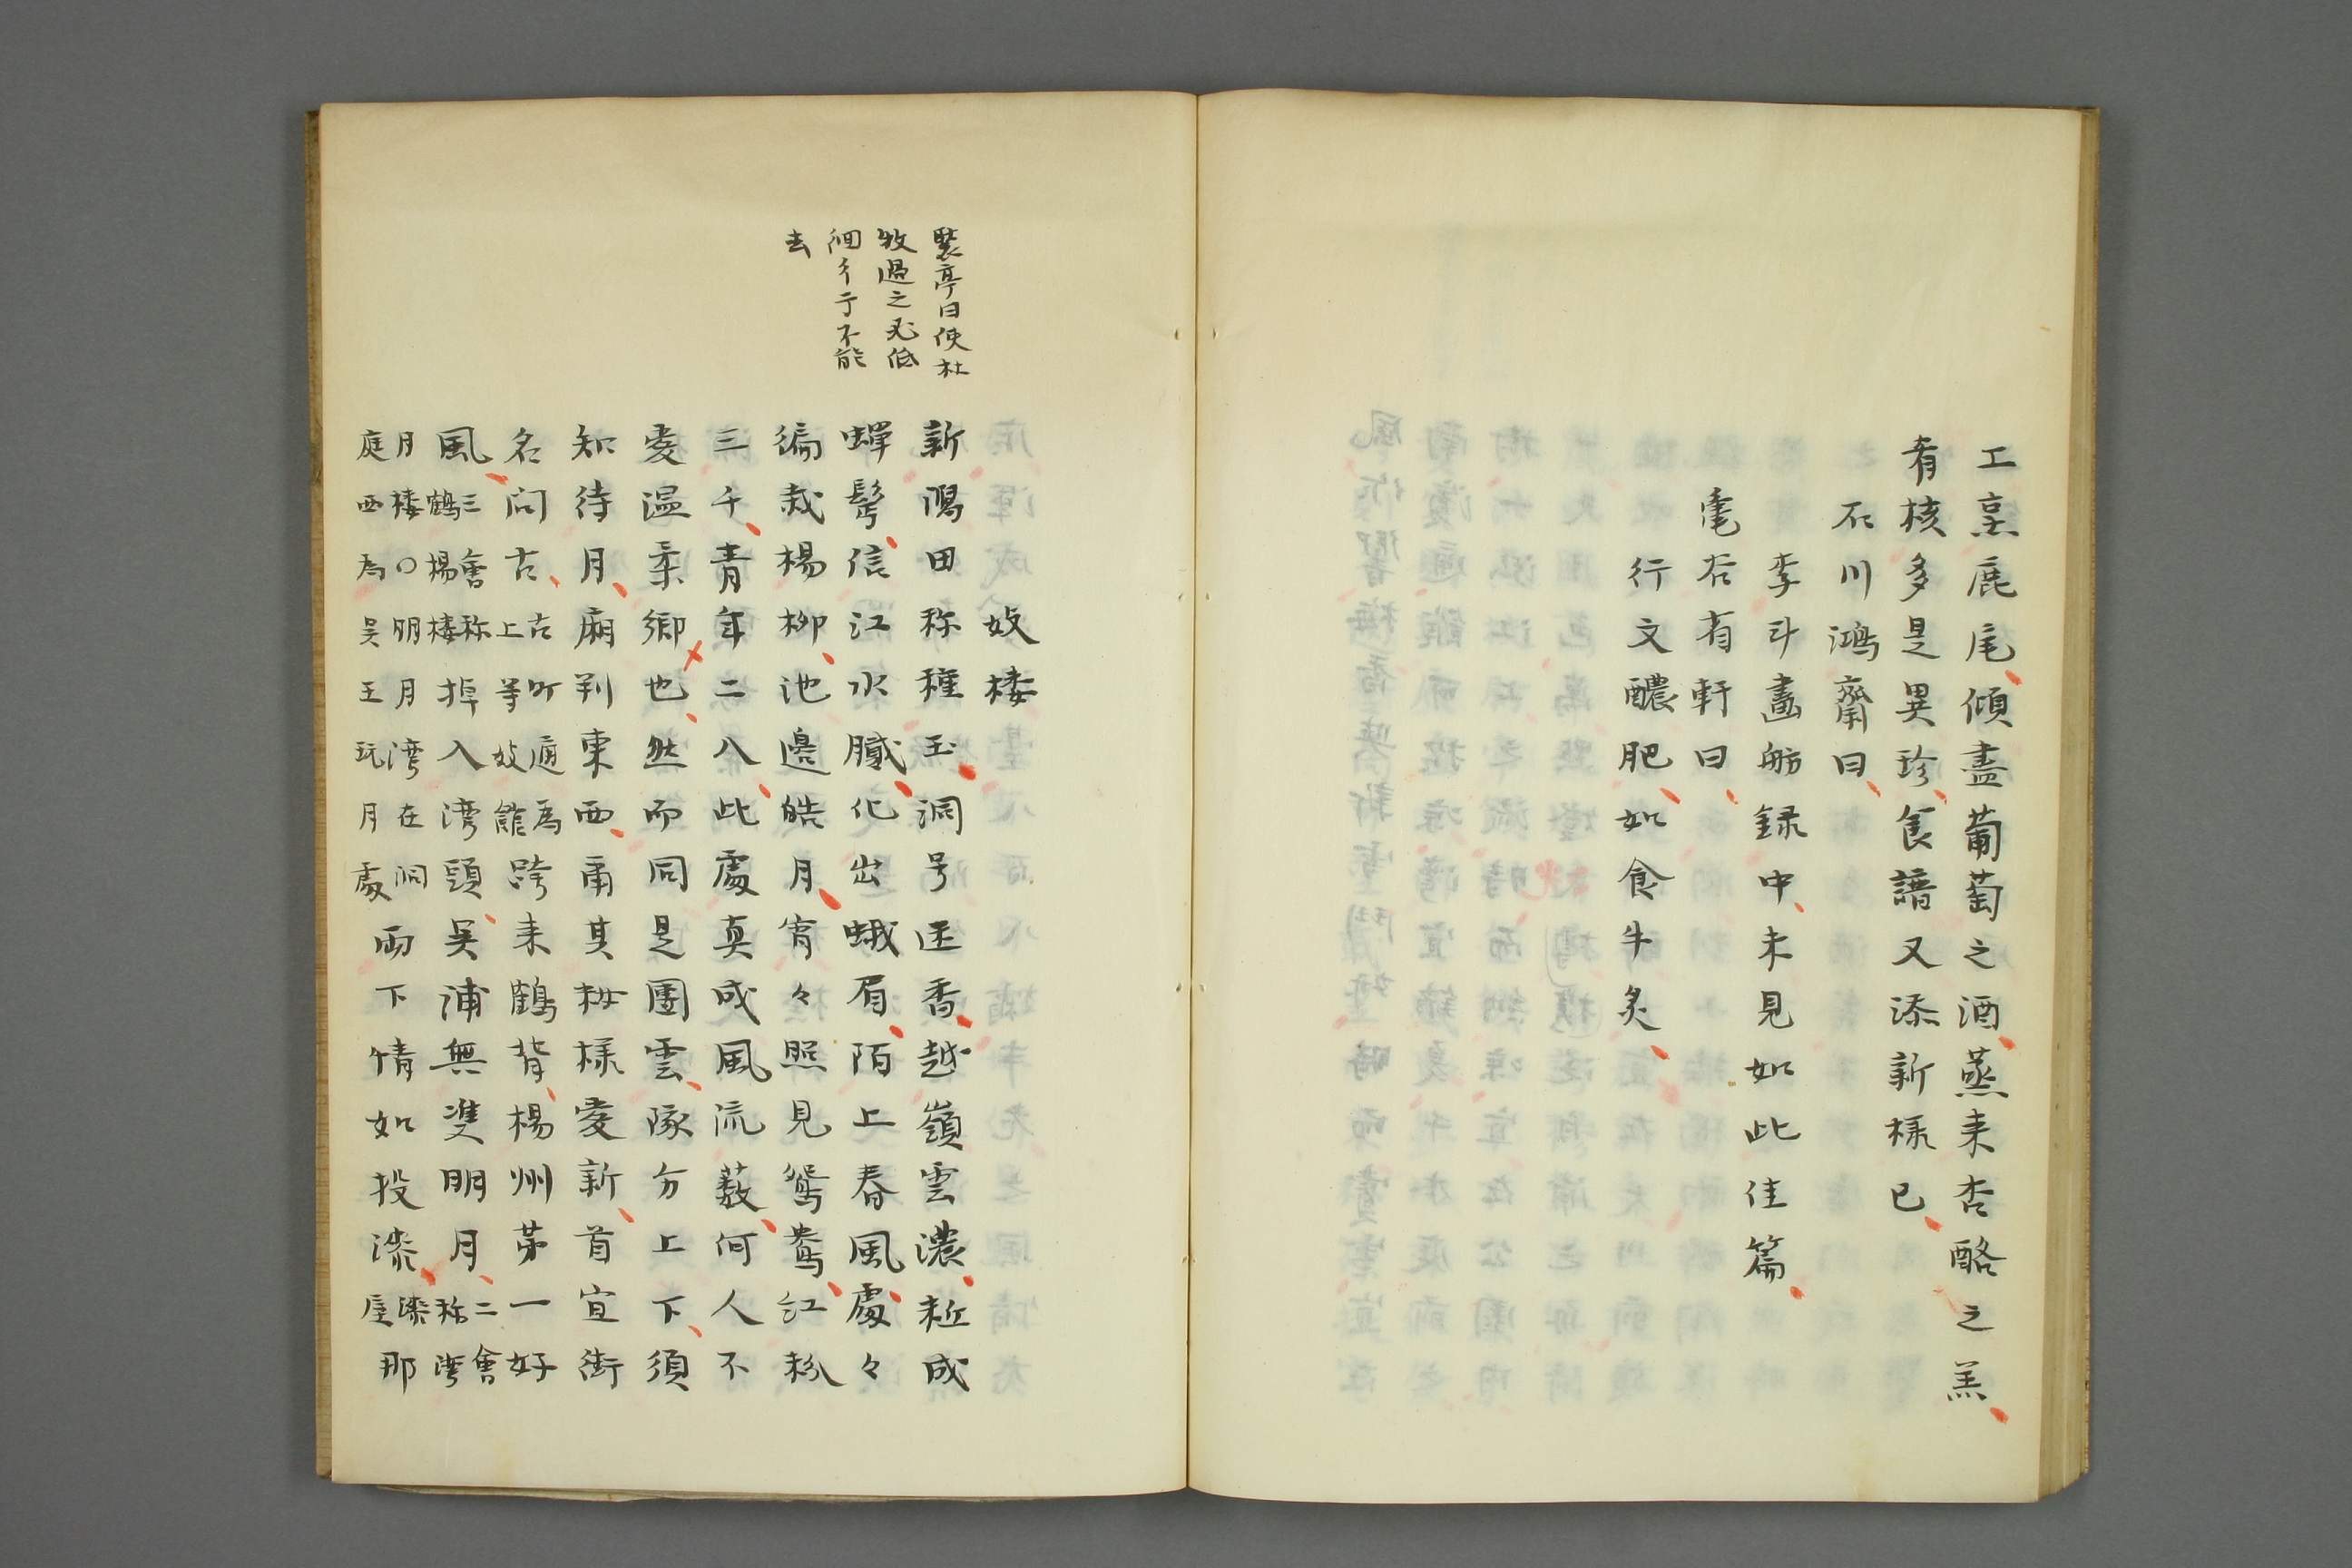 工烹鹿尾傾盡葡萄之酒蒸来杏酪之羔
肴核多是異珍食譜又添新様已
石川鴻齋曰
李斗畫舫録中未見如此佳篇
亀谷省軒曰
行文醲肥如食牛炙
裴亭曰使杜
牧過之必低
徊彳亍不能
去
妓楼
新潟田称種玉洞号迷香越嶺雲濃粧成
蝉髩信江水膩化出蛾眉陌上春風處々
徧栽楊柳池邊皓月宵々照見鴛鴦紅粉
三千青年二八此處真成風流薮何人不
愛温柔郷也然而同是團雲隊分上下須
知待月廂判東西甫其妝様愛新首宜街
名問古
古古町廊為
上等妓館
跨来鶴背楊州第一好
風
三會称
鶴楊楼
掉入湾頭吴浦無雙明月
二會
称湾
月楼〇明月湾在洞
庭西為吴王玩月處
両下情如投漆
漆
屋
那